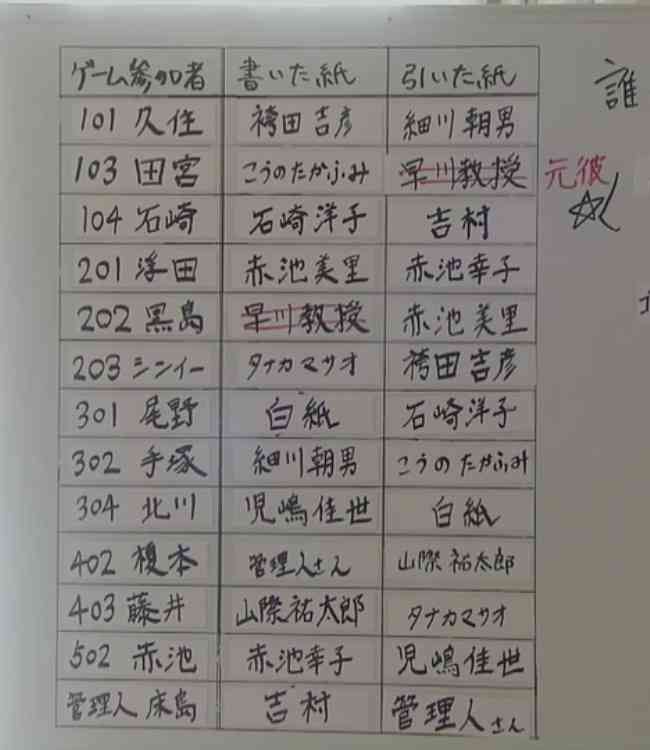 ゲーム参加者 書いた紙 引いた紙
誰
101 久住 袴田吉彦 細川朝男
103 田宮 こうのたかふみ 早川教授 元彼
104 石崎 石崎洋子 吉村
201 浮田 赤池美里 赤池幸子
202 黒島 早川教授 赤池美里
203 シンイー タナカマサオ 袴田吉彦
301 尾野 白紙 石崎洋子
302 手塚 細川朝男 こうのたかふみ
304 北川 児嶋佳世 白紙
402 榎本 管理人さん 山際祐太郎
403 藤井 山際祐太郎 タナカマサオ
502 赤池 赤池幸子 児嶋佳世
管理人 床島 吉村 管理人さん